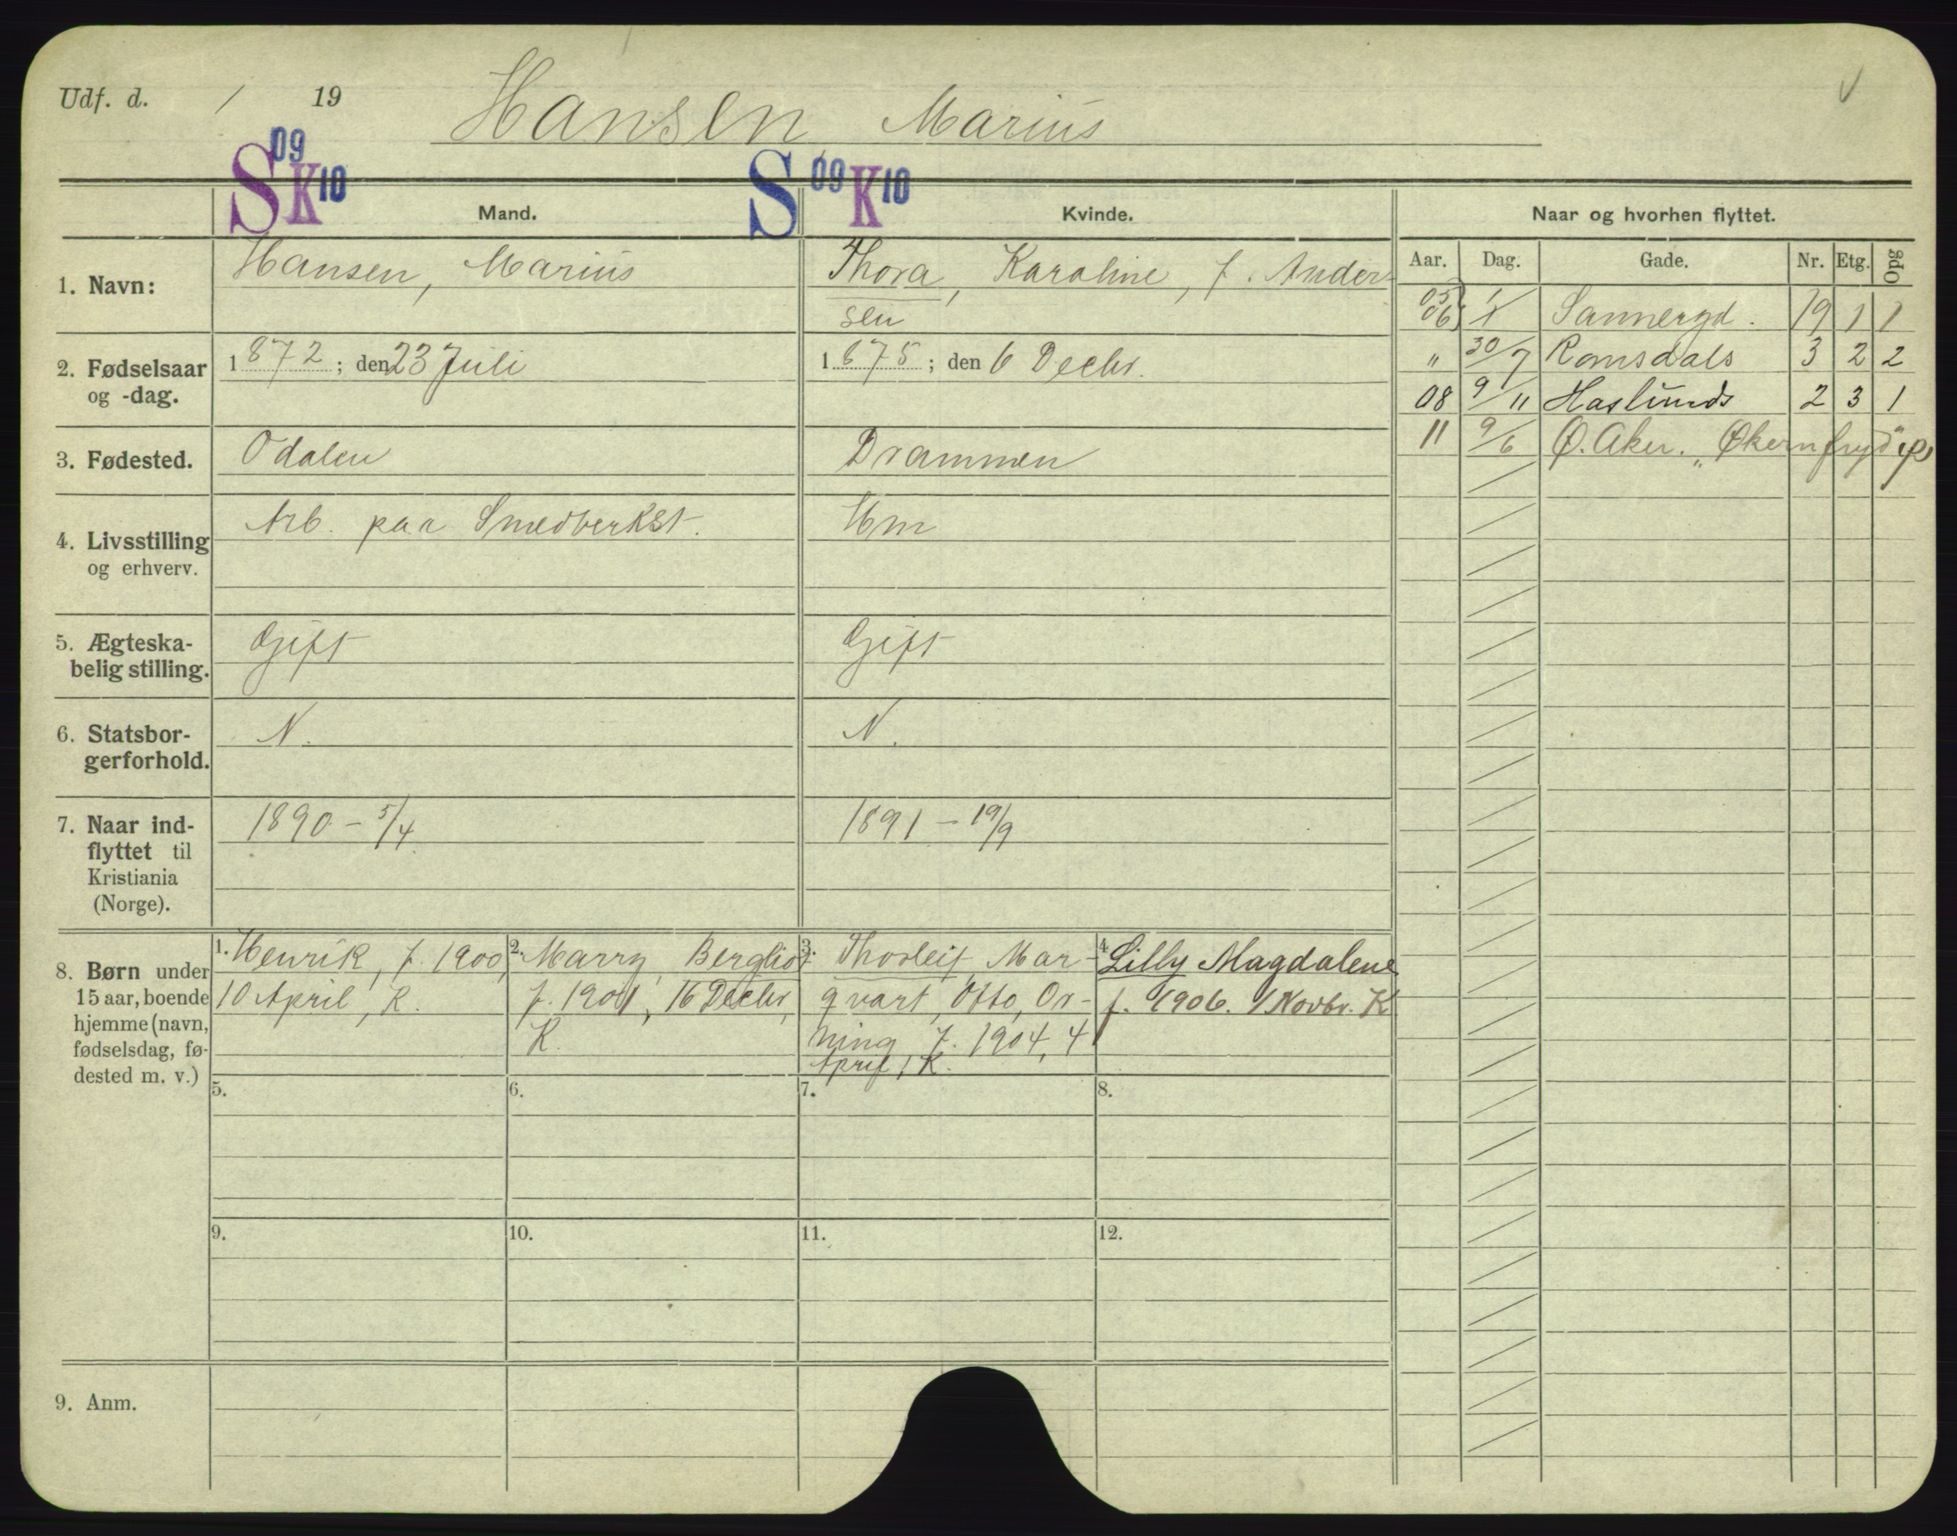 Udf. d. / 19
Hansen, Marius
S 09 K 10 S 09 K 10
Mand. Kvinde. Naar og hvorhen flyttet.
Aar. Dag. Gade. Nr. Etg. Opg
1. Navn: Hansen, Marius Thora, Karoline, f. Ander-
sen
2. Fødselsaar 1872; den 23 Juli 1875; den 6 Decbr.
og -dag.
3. Fødested. Odalen Drammen
4. Livsstilling Arb. paa Smedverkst. Hm
og erhverv.
5. Ægteska- Gift Gift
belig stilling.
6. Statsbor- N. N.
gerforhold.
7. Naar ind- 1890 - 5/4 1891 - 19/9
flyttet til
Kristiania
(Norge).
05/06 1/1 Sannergd. 19 1 1
" 30/7 Romsdals 3 2 2
08 9/11 Haslunds 2 3 1
11 9/6 Ø. Aker. "Økernfryd"
8. Børn under
15 aar, boende
hjemme (navn,
fødselsdag, fø-
dested m. v.)
1. Henrik, f. 1900,
10 April, K.
2. Marry Bergliot
f. 1901, 16 Decbr,
K.
3. Thorleif Mar-
qvart, Otto, Or-
ning f. 1904, 4
April, K.
4. Lilly Magdalene
f. 1906. 1/ Novbr. K
5. 6. 7. 8.
9. 10. 11. 12.
9. Anm.